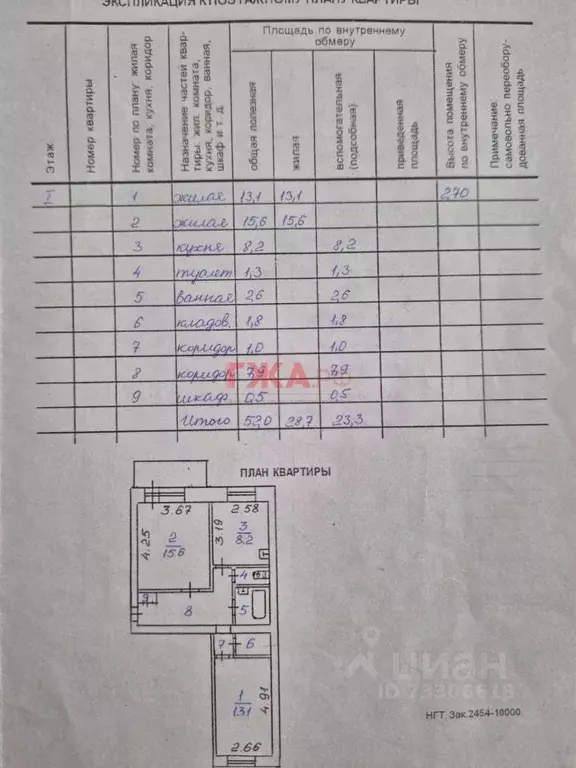 ЭКСПЛИКАЦИЯ К ПОЭТАЖНОМУ ПЛАНУ КВАРТИРЫ
Этаж.
Номер квартиры
Номер по плану жилая комната, кухня, коридор
Назначение частей квартиры: жил. комната, кухня, коридор, ванная, шкаф и т. д.
Площадь по внутреннему обмеру
общая полезная
жилая
вспомогательная (подсобная)
приведенная площадь
Высота помещения по внутреннему обмеру
Примечание. самовольно переоборудованная площадь
I 1 жилая 13,1 13,1 270
2 жилая 15,6 15,6
3 кухня 8,2 8,2
4 туалет 1,3 1,3
5 ванная 2,6 2,6
6 кладов. 1,8 1,8
7 коридор 1,0 1,0
8 коридор 7,9 7,9
9 шкаф 0,5 0,5
Итого 52,0 28,7 23,3
ГЖА.РФ
ПЛАН КВАРТИРЫ
3.67
2.58
4.25
2
15.6
3.19
3
8.2
4
9
8
5
7
6
1
13.1
4.91
2.66
циан
ID 73306618
НГТ. Зак.2464-10000.